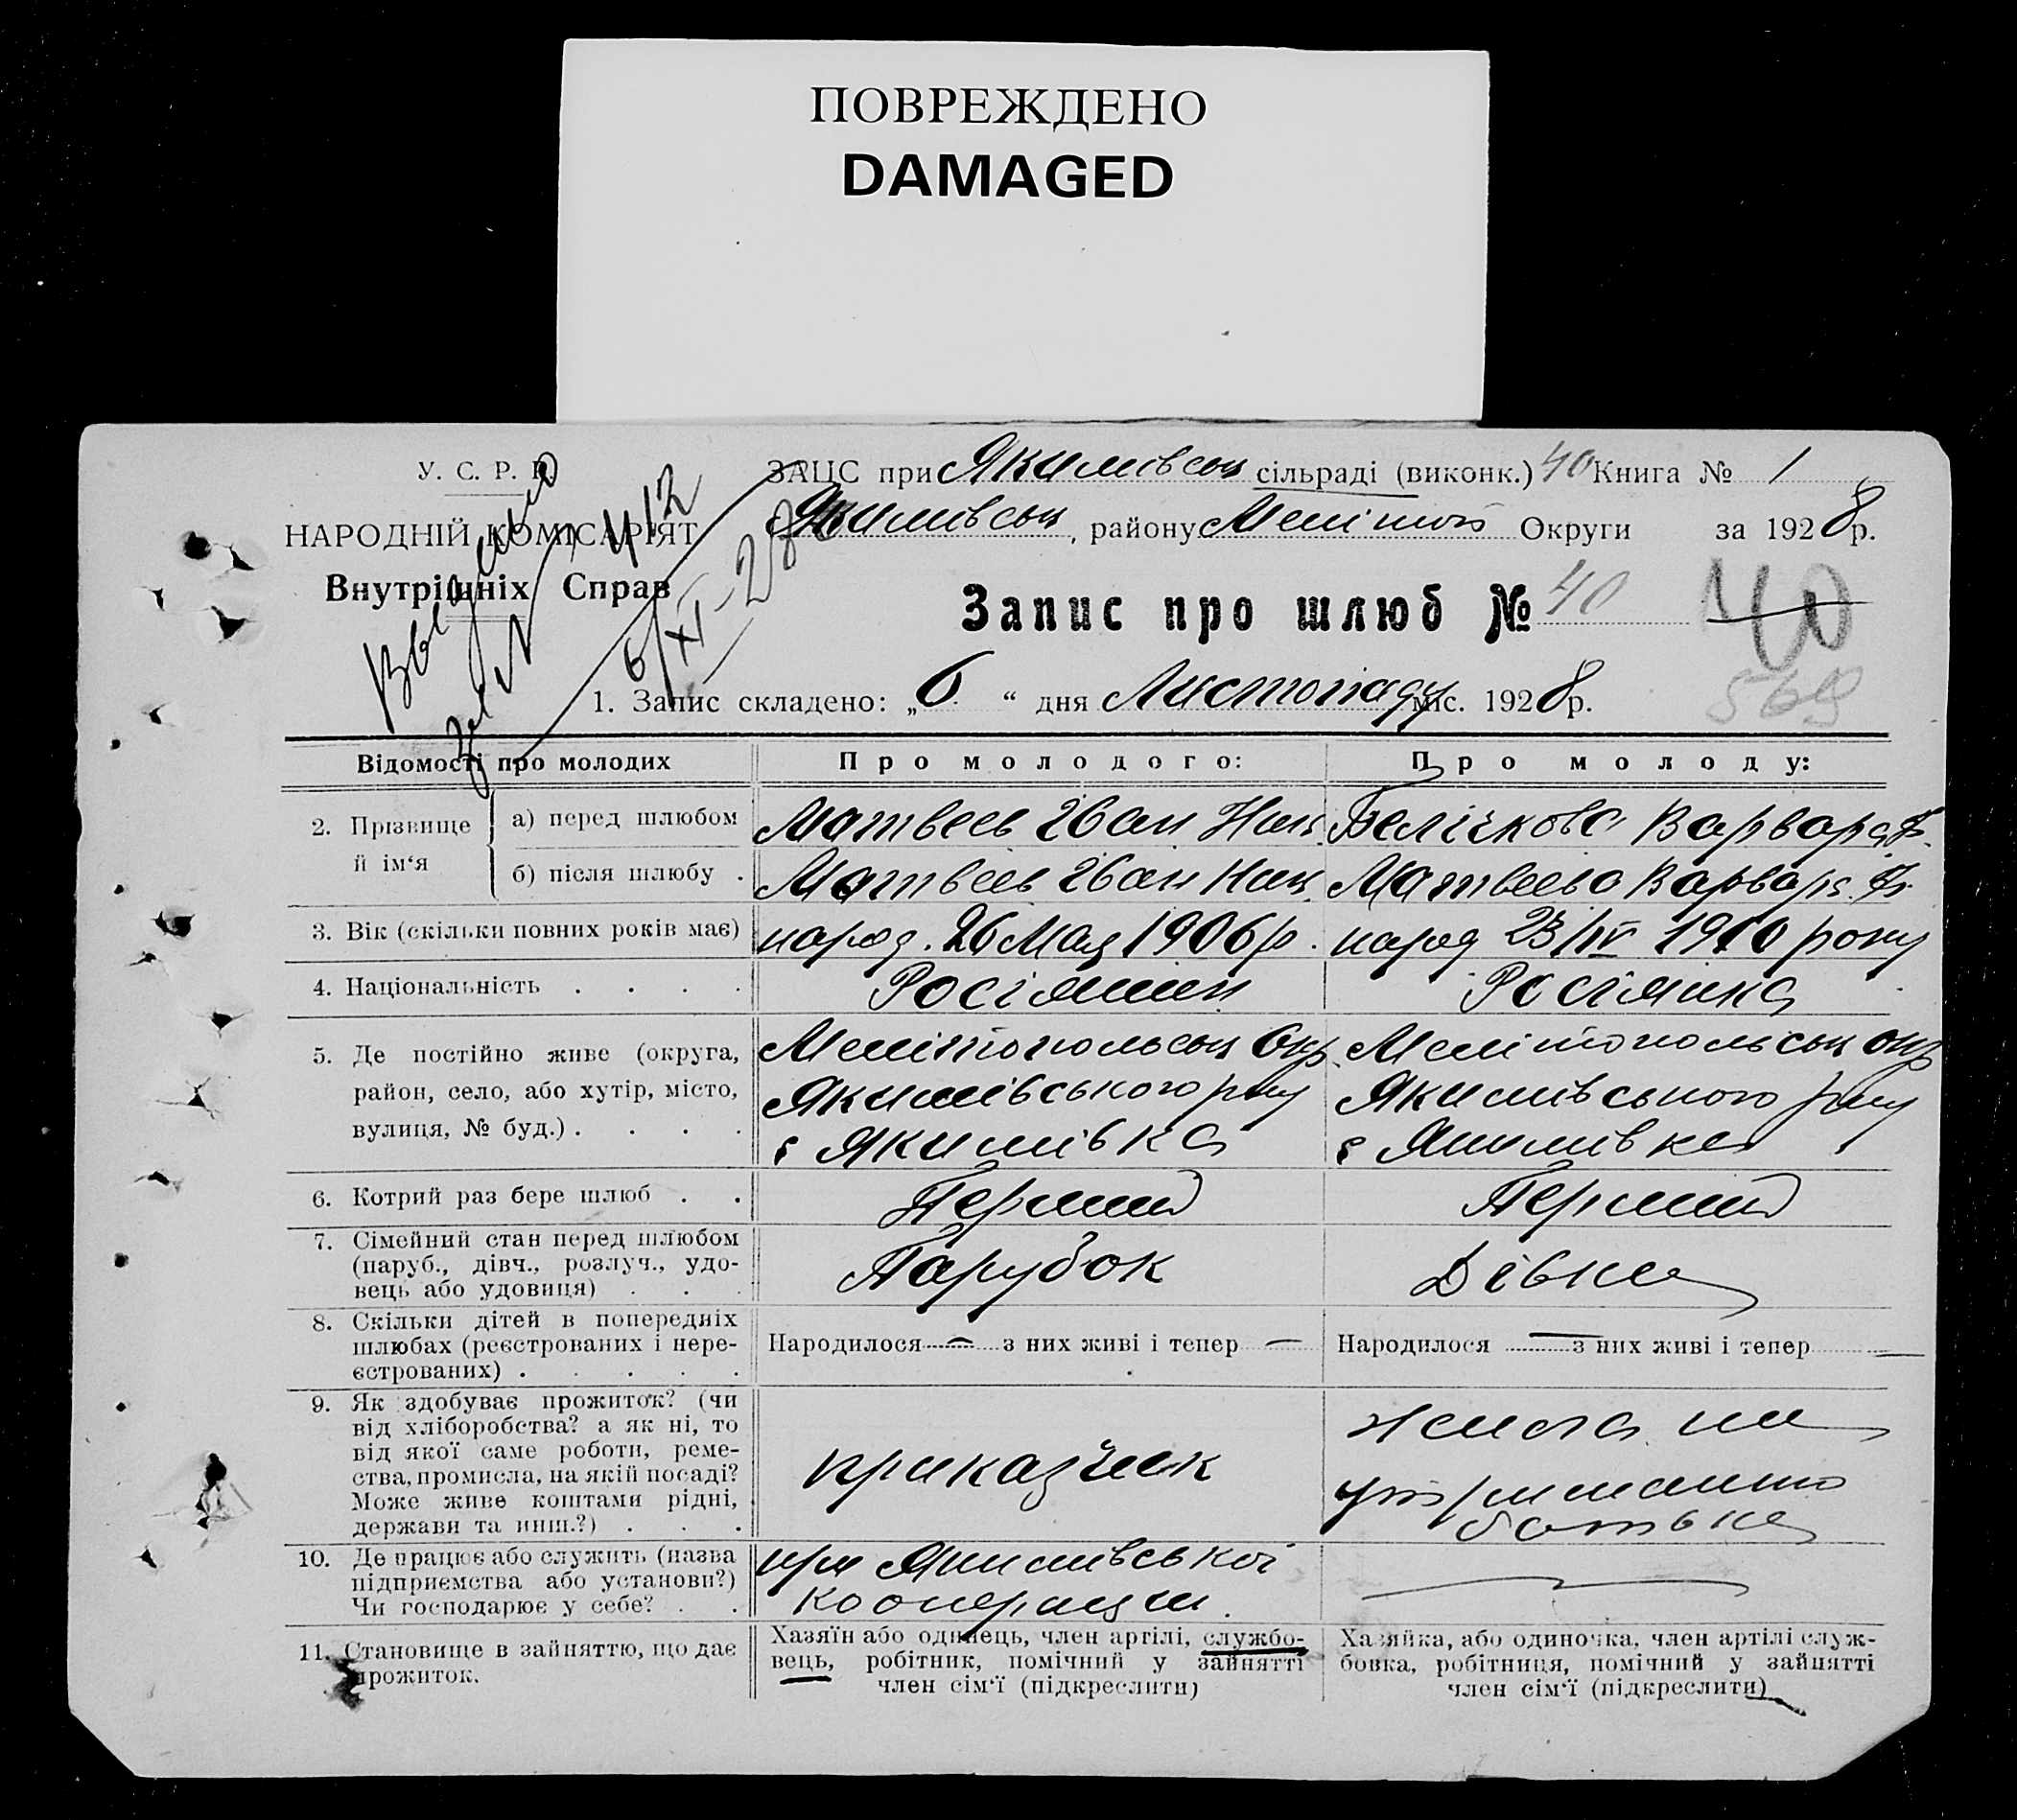 ПОВРЕЖДЕНО
DAMAGED
У. С. Р. Р.
НАРОДНІЙ КОМІСАРІЯТ
Внутрішніх Справ
Выдано
№ 412
6/XI-28
ЗАЦС при Якимівськ сільраді (виконк.) 40 Книга № 1
Якимівськ, району Меліт Округи за 1928 р.
Запис про шлюб № 40
40
569
1. Запис складено: „6“ дня Листопаду міс. 1928 р.
Відомості про молодих
Про молодого:
Про молоду:
2. Прізвище й ім‘я
а) перед шлюбом
Матвеев Іван
Белічкова Варвара
б) після шлюбу .
Матвеев Іван
Матвеева Варвара
3. Вік (скільки повних років має)
народ. 26 Мая 1906 р.
народ 23/IV 1910 року
4. Національність . . . .
Росіянин
Росіянка
5. Де постійно живе (округа,
район, село, або хутір, місто,
вулиця, № буд.) . . . .
Мелітопольськ Окр.
Якимівського р-ну
с Якимівка
Мелітопольськ окр
Якимівського р-ну
с Якимівка
6. Котрий раз бере шлюб . .
Перший
Перший
7. Сімейний стан перед шлюбом
(паруб., дівч., розлуч., удо-
вець або удовиця) . . .
Парубок
Дівка
8. Скільки дітей в попередніх
шлюбах (реєстрованих і нере-
єстрованих) . . . . .
Народилося — з них живі і тепер —
Народилося — з них живі і тепер —
9. Як здобуває прожиток? (чи
від хліборобства? а як ні, то
від якої саме роботи, реме-
ства, промисла, на якій посаді?
Може живе коштами рідні,
держави та инш.?) . . .
приказчик
жила на
утриманню
батька
10. Де працює або служить (назва
підприємства або установи?)
Чи господарює у себе? . .
при Якимівської
кооперации.
11. Становище в зайняттю, що дає
прожиток.
Хазяїн або одинець, член артілі, службо-
вець, робітник, помічний у зайнятті
член сім‘ї (підкреслити)
Хазяйка, або одиночка, член артілі служ-
бовка, робітниця, помічний у зайнятті
член сім‘ї (підкреслити)